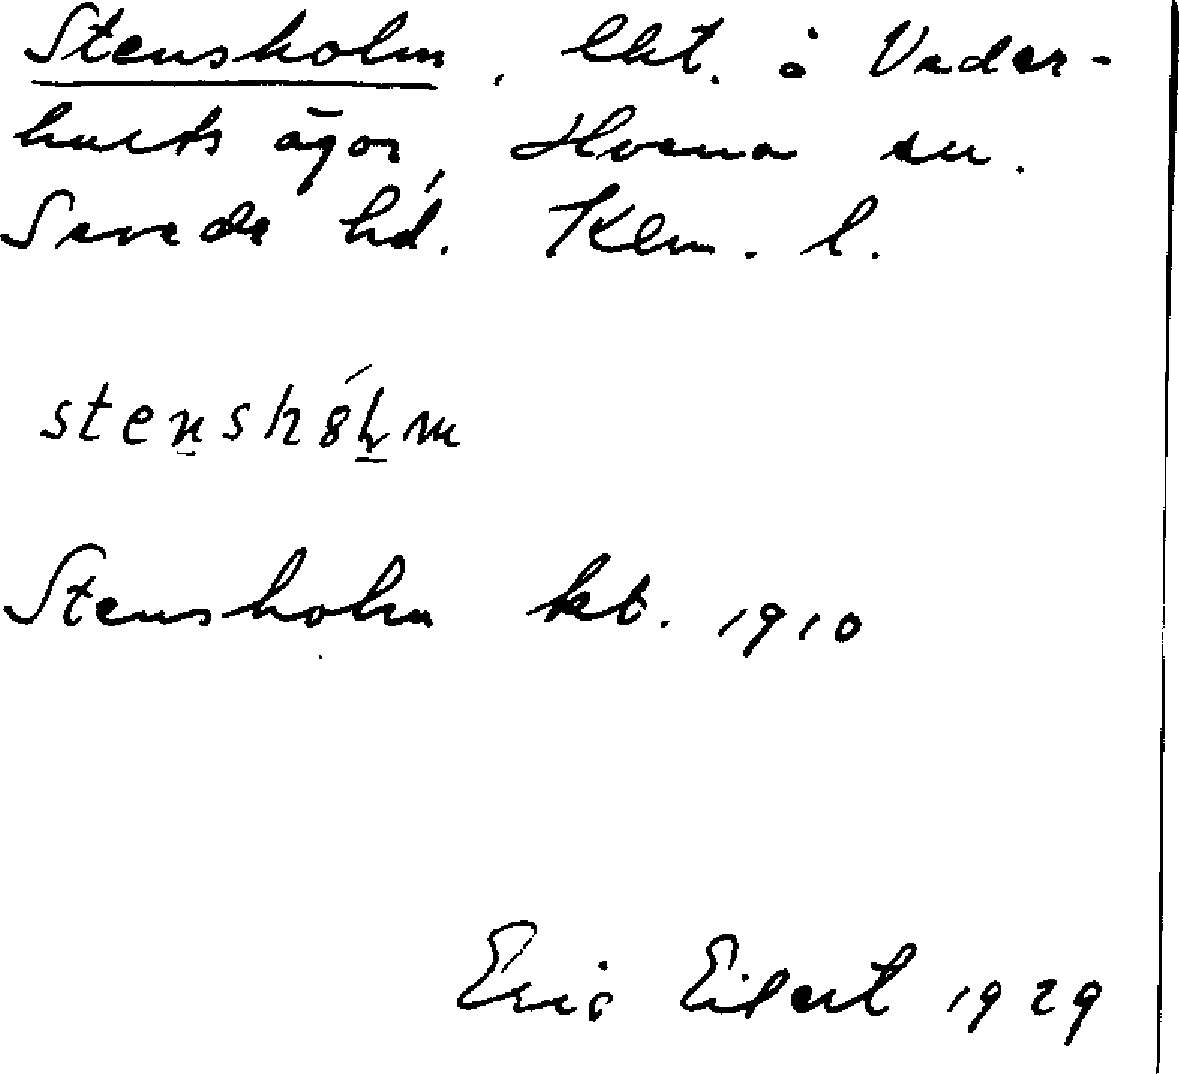 Stensholm, lht. å Vader-
hults ägor, Hvena sn.
Sevede hd. Klm. l.
stensh
Stensholm kb. 1910
Eric Eilert 1929